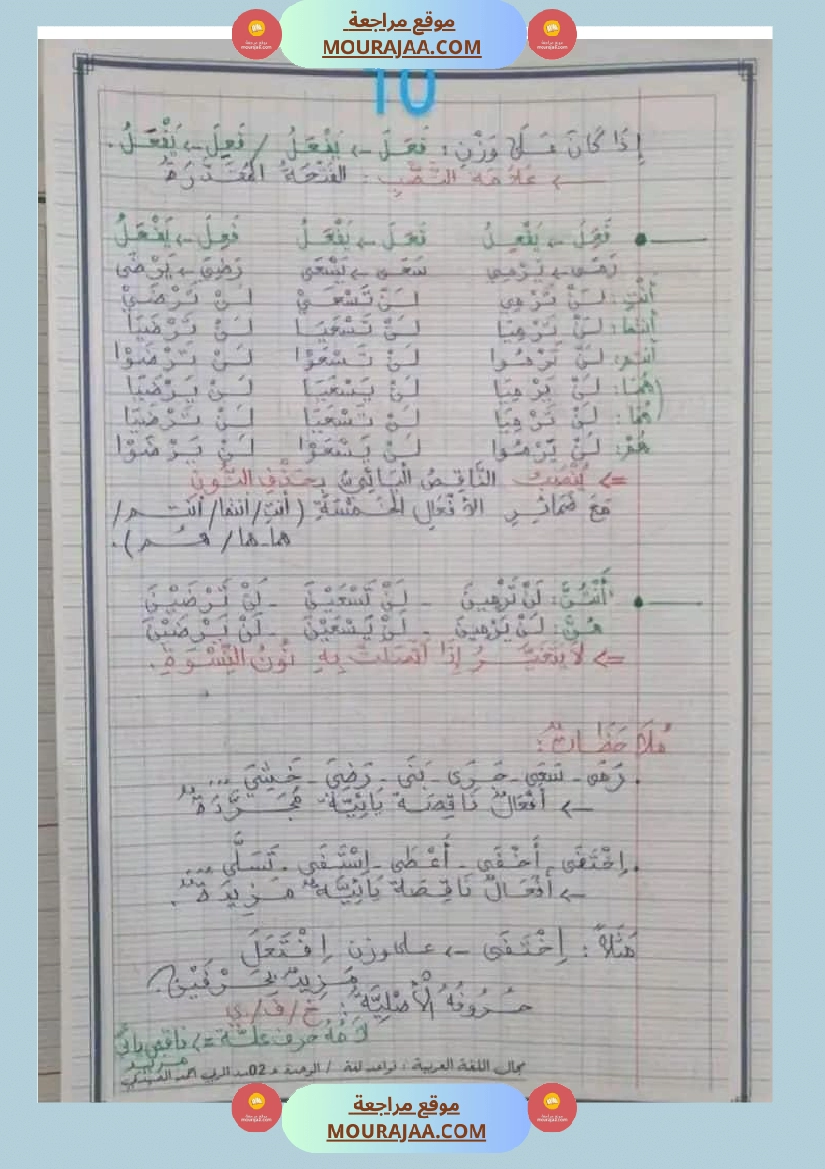 موقع مراجعة
MOURAJAA.COM
10
إِذَا كَانَ عَلَى وَزْنِ: فَعَلَ ← يَفْعَلُ / فَعِلَ ← يَفْعَلُ.
← عَلَامَة النَّصْبِ: الفَتْحَةُ المُقَدَّرَةُ
فَعَلَ ← يَفْعِلُ فَعَلَ ← يَفْعَلُ فَعِلَ ← يَفْعَلُ
رَمَى ← يَرْمِي سَعَى ← يَسْعَى رَضِيَ ← يَرْضَى
أَنْتِ: لَنْ تَرْمِي لَنْ تَسْعَيْ لَنْ تَرْضَيْ
أَنتما: لَنْ تَرْمِيَا لَنْ تَسْعَيَا لَنْ تَرْضَيَا
أنتم: لَنْ تَرْمُوا لَنْ تَسْعَوْا لَنْ تَرْضَوْا
هُمَا: لَنْ يَرْمِيَا لَنْ يَسْعَيَا لَنْ يَرْضَيَا
هُمَا: لَنْ تَرْمِيَا لَنْ تَسْعَيَا لَنْ تَرْضَيَا
هُمْ: لَنْ يَرْمُوا لَنْ يَسْعَوْا لَنْ يَرْضَوْا
⇐ يُنْصَبُ النَّاقِصُ الْيَائِيُّ بِحَذْفِ النُّونِ
مَعَ ضَمَائِرِ الأَفْعَالِ الخَمْسَةِ (أنتِ/أنتما/أنتم/
هما-هما/هُم).
أَنْتُنَّ: لَنْ تَرْمِينَ - لَنْ تَسْعَيْنَ - لَنْ تَرْضَيْنَ
هُنَّ: لَنْ يَرْمِينَ - لَنْ يَسْعَيْنَ - لَنْ يَرْضَيْنَ
⇐ لَا يَتَغَيَّرُ إِذَا اتَّصَلَتْ بِهِ نُونُ النِّسْوَةِ.
مُلَاحَظَاتٌ:
. رَمَى - سَعَى - جَرَى - بَنَى - رَضِيَ - خَشِيَ ...
← أَفْعَالٌ نَاقِصَةٌ يَائِيَّةٌ مُجَرَّدَةٌ
. اِخْتَفَى - أَخْفَى - أَعْطَى - اِسْتَفَى - تَسَلَّى ...
← أَفْعَالٌ نَاقِصَةٌ يَائِيَّةٌ مَزِيدَةٌ.
مَثَلاً: اِخْتَفَى ← على وزن اِفْتَعَلَ
مَزِيدٌ بِحَرْفَيْنِ.
حُرُوفُهُ الْأَصْلِيَّةُ: خ/ف/ي
لَامُهُ حرف علّة ⇐ ناقص يائيّ
مزيد
مجال اللغة العربية: قواعد لغة / الوحدة 02
موقع مراجعة
MOURAJAA.COM